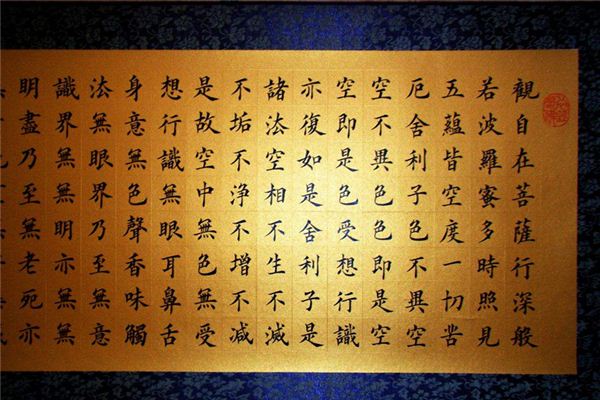 觀自在菩薩行深般
若波羅蜜多時照見
五蘊皆空度一切苦
厄舍利子色不異空
空不異色色即是空
空即是色受想行識
亦復如是舍利子是
諸法空相不生不滅
不垢不浄不增不减
是故空中無色無受
想行識無眼耳鼻舌
身意無色聲香味觸
法無眼界乃至無意
識界無無明亦無無
明盡乃至無老死亦